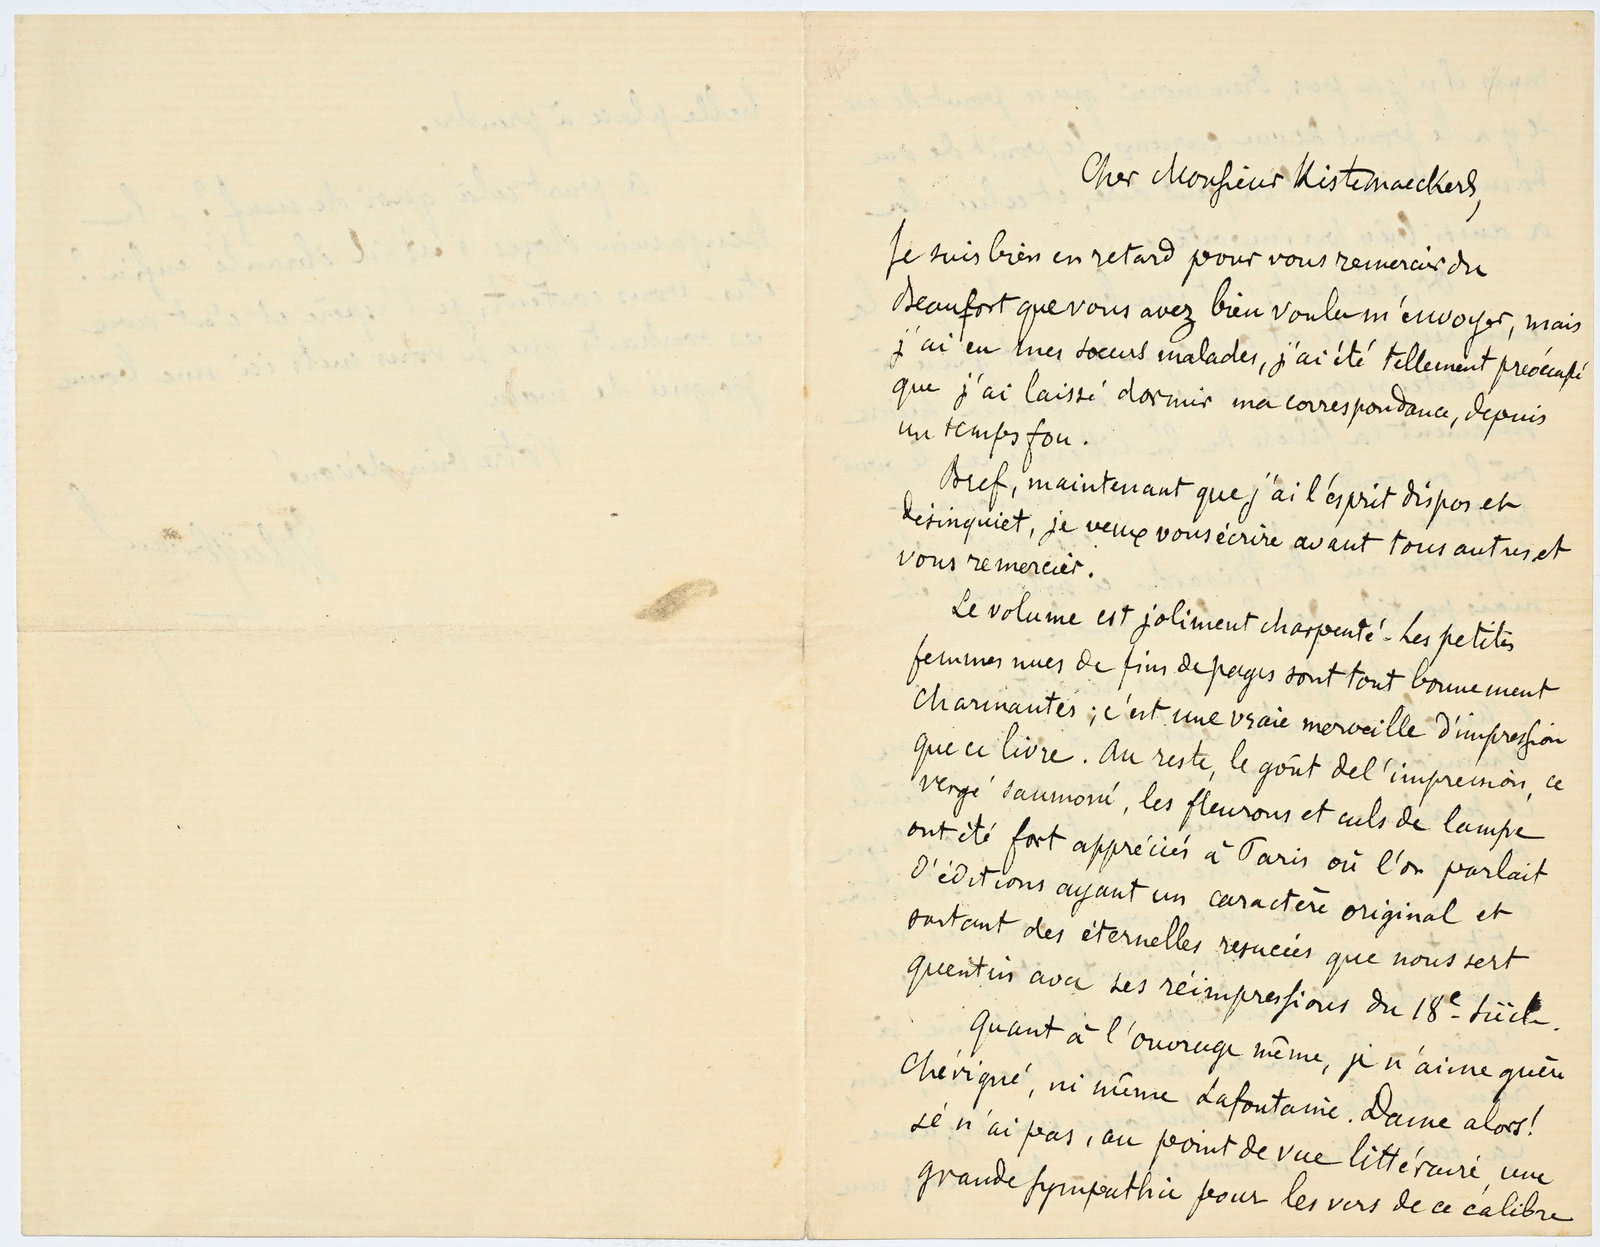 Cher Monsieur Kistemaeckers,
Je suis bien en retard pour vous remercier du
Beaufort que vous avez bien voulu m'envoyer, mais
j'ai eu mes soeurs malades, j'ai été tellement préoccupé
que j'ai laissé dormir ma correspondance, depuis
un temps fou.
Bref, maintenant que j'ai l'esprit dispos et
désinquiet, je veux vous écrire avant tous autres et
vous remercier.
Le volume est joliment charpenté - Les petites
femmes nues de fins de pages sont tout bonnement
charmantes ; c'est une vraie merveille d'impression
que ce livre. Au reste, le goût de l'impression, ce
vergé saumoné, les fleurons et culs de lampe
ont été fort appréciés à Paris où l'on parlait
d'éditions ayant un caractère original et
sortant des éternelles resucées que nous sert
Quentin avec ses réimpressions du 18e siècle.
Quant à l'ouvrage même, je n'aime guère
Chévigné, ni même Lafontaine. Dame alors!
Je n'ai pas, au point de vue littéraire, une
grande sympathie pour les vers de ce calibre